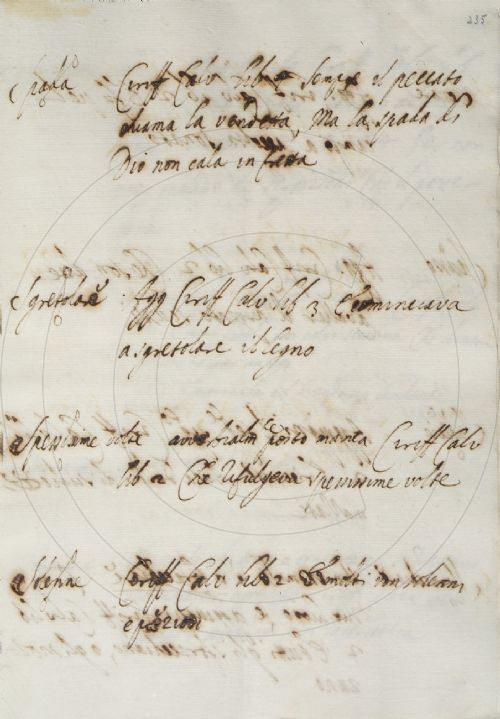 235
Spada Ciriff Calv lib 2 sempre il peccato
chiama la vendetta, Ma la spada di
Dio non cala in fretta
Sgretolare Agg Ciriff Calv lib 3 E cominciava
a sgretolare il legno
Spessissime volte avverbialm posto manca Ciriff Calv
lib 2 Che rifulgeva spessissime volte
Solenne Ciriff Calv lib 2 molti con solenni